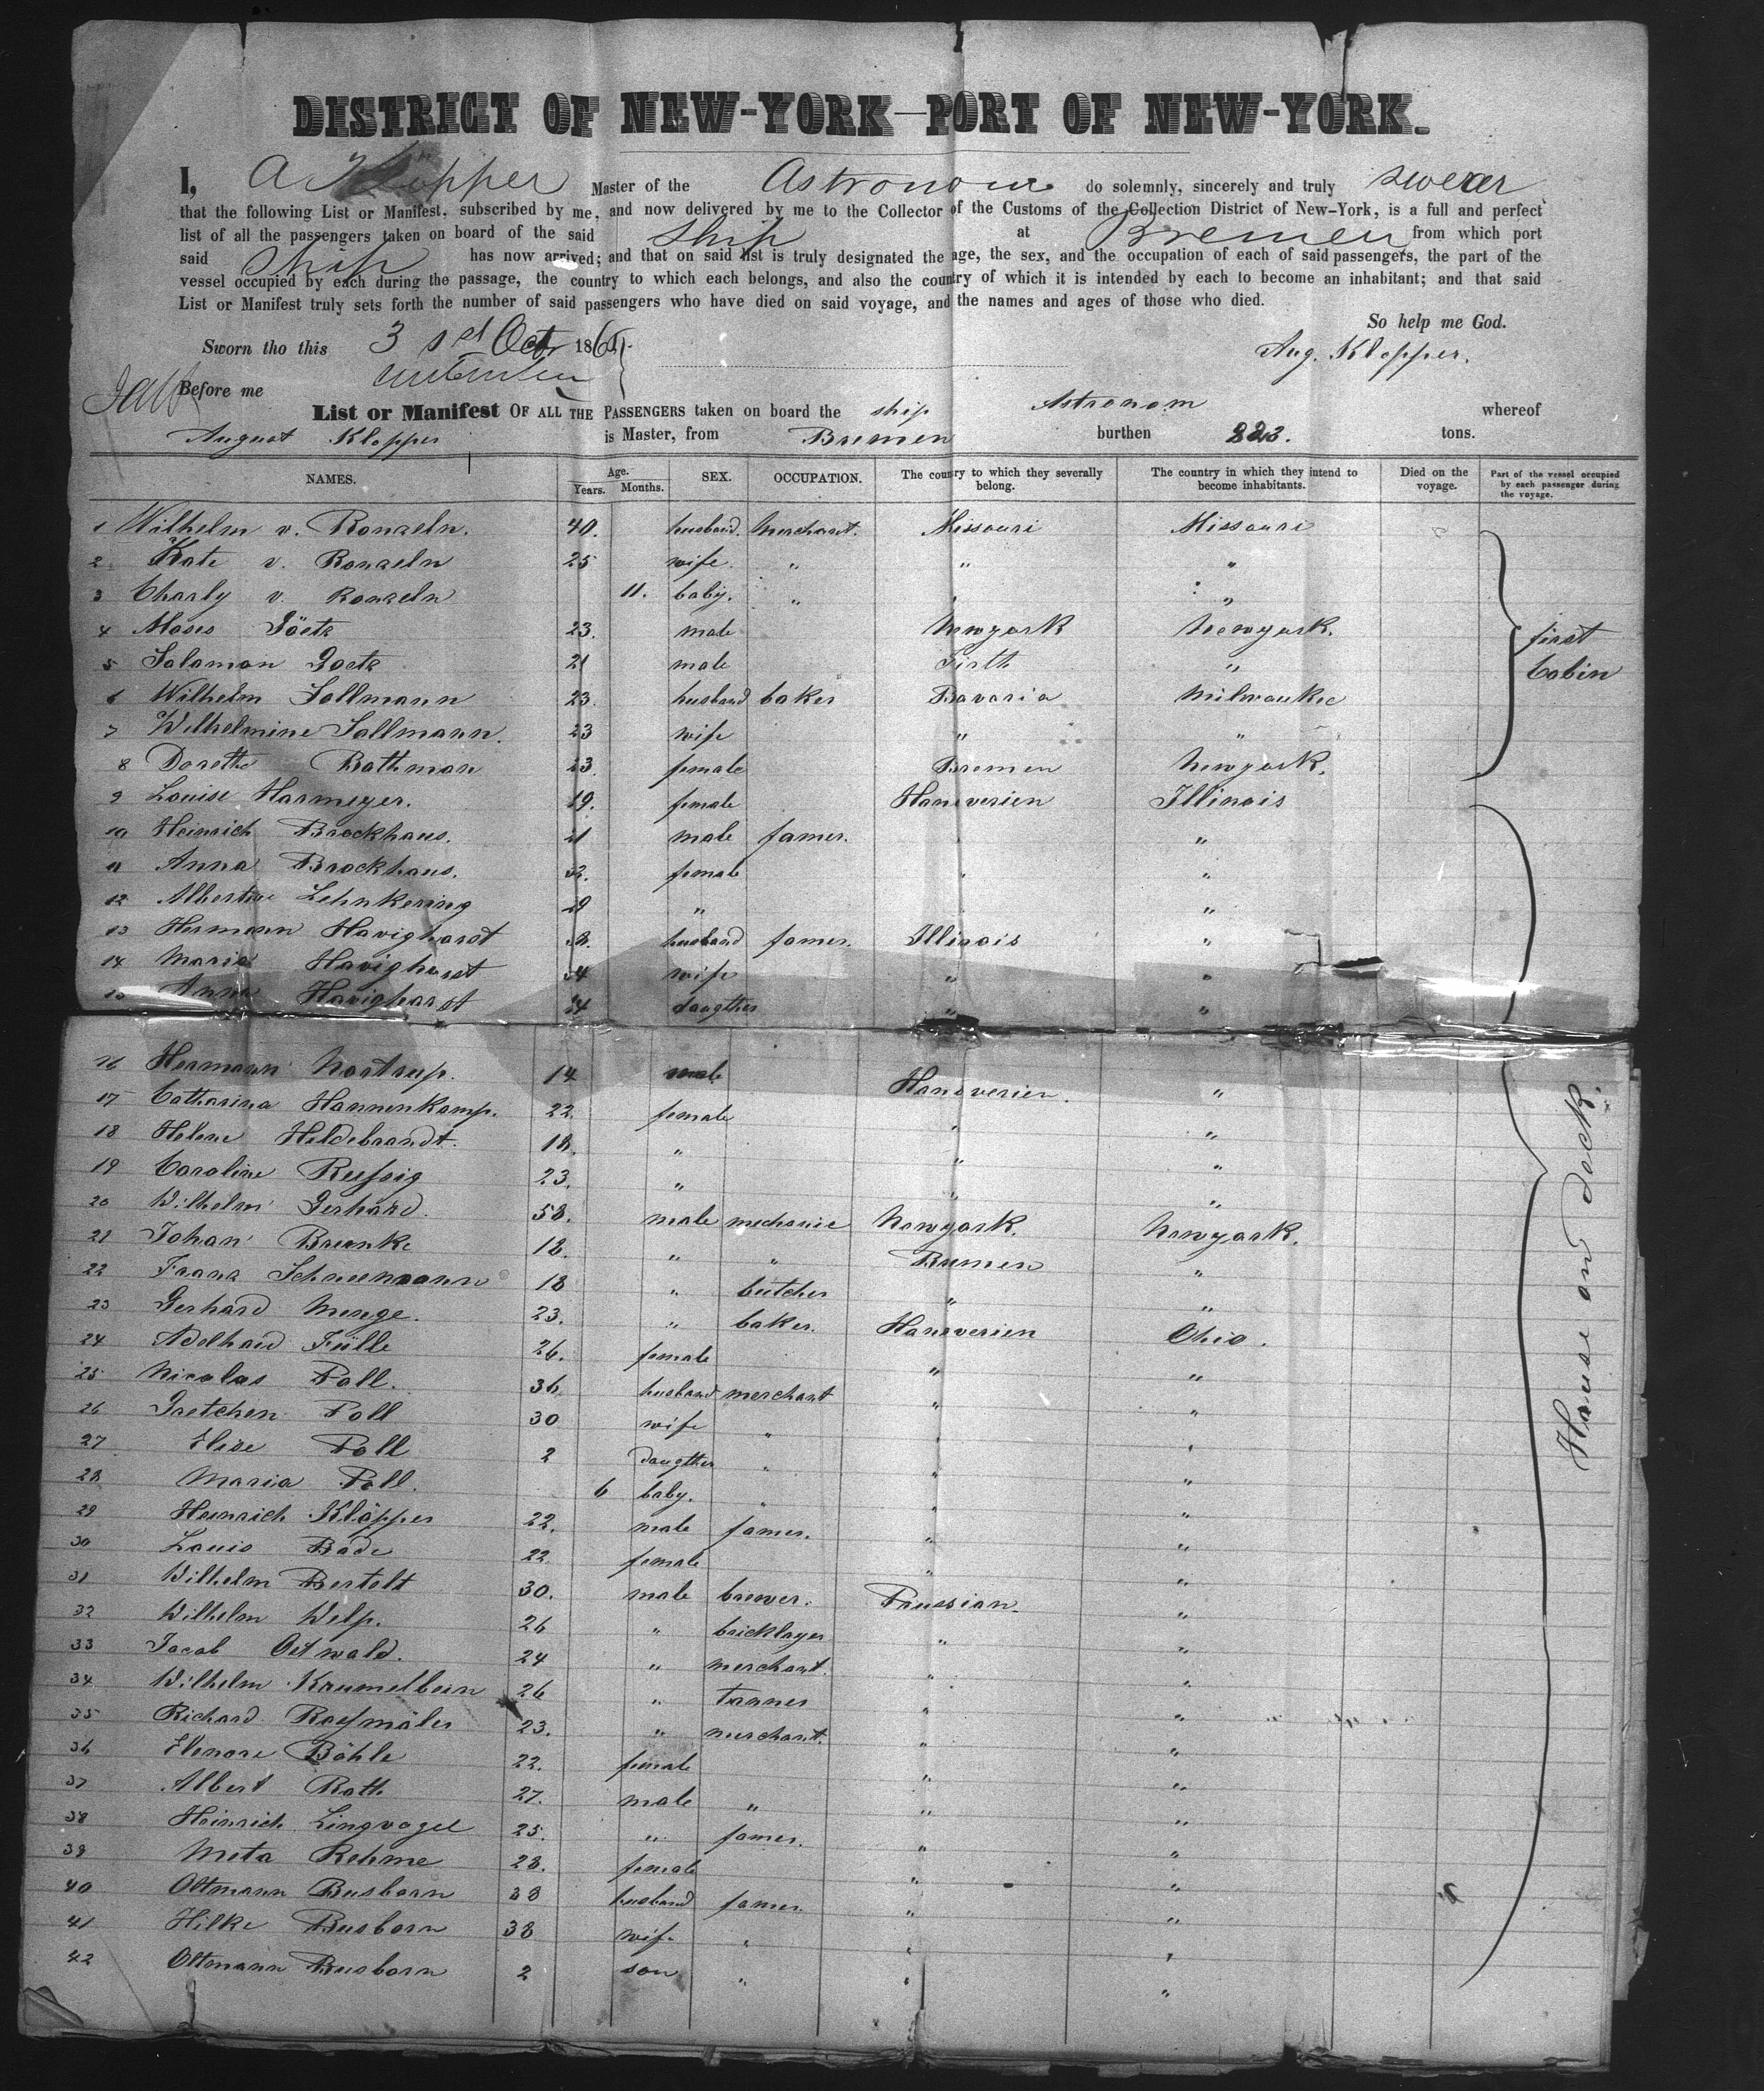 DISTRICT OF NEW-YORK—PORT OF NEW-YORK.
I, A Klopper Master of the Astronom do solemnly, sincerely and truly swear
that the following List or Manifest, subscribed by me, and now delivered by me to the Collector of the Customs of the Collection District of New-York, is a full and perfect
list of all the passengers taken on board of the said ship at Bremen from which port
said ship has now arrived; and that on said list is truly designated the age, the sex, and the occupation of each of said passengers, the part of the
vessel occupied by each during the passage, the country to which each belongs, and also the country of which it is intended by each to become an inhabitant; and that said
List or Manifest truly sets forth the number of said passengers who have died on said voyage, and the names and ages of those who died.
So help me God.
Sworn tho this 3 Oct 186
Aug. Klopper.
Before me
List or Manifest OF ALL THE PASSENGERS taken on board the ship Astronom whereof
August Klopper is Master, from Bremen burthen 823. tons.
NAMES. Age. Years. Months. SEX. OCCUPATION. The country to which they severally belong. The country in which they intend to become inhabitants. Died on the voyage. Part of the vessel occupied by each passenger during the voyage.
1 Wilhelm v. Ronzeln. 40. husband. Merchant. Missouri Missouri
2 Kate v. Ronzeln 25 wife. " " "
3 Charly v. Ronzeln 11. baby. " " "
4 Moses Göetz 23. male Newyork Newyork.
first Cabin
5 Salamon Goetz 21 male Firth "
6 Wilhelm Sollmann 23. husband baker Bavaria Milwaukee
7 Wilhelmine Sollmann. 23 wife " "
8 Dorethe Rothman 23. female Bremen Newyork.
9 Louise Harmeyer. 19. female Hanoverien Illinois
10 Heinrich Brockhaus. 21 male famer. " "
11 Anna Brockhaus. female " "
12 Albertine Lehnkering 29 " " "
13 Hermann Havighorst husband famer. Illinois "
14 Maria Havighorst 54 wife " "
15 Anna Havighorst daugther " "
16 Hermann Nortrup. 14 male Hanoverien. "
17 Catharina Hannenkamp. 22. female " "
18 Helene Hildebrandt. 18. " " "
19 Caroline Russig 23. " " "
20 Wilhelm Gerhard. 58. male mechanic Newyork. Newyork.
21 Johan Breunke 18. " " Bremen "
22 Franz Schneemann 18 " butcher " "
23 Gerhard Menge. 23. " baker. Hanoverien Ohio.
24 Adelhaid Fülle 26. female " "
25 Nicolas Poll. 36 husband merchant " "
26 Gretchen Poll 30 wife " " "
27 Elise Poll 2 daugther " " "
28 Maria Poll. 6 baby. " " "
29 Heinrich Klöpper 22. male famer. " "
30 Louis Bade 22 female " "
31 Wilhelm Bertelt 30. male brewer. Preussian. "
32 Wilhelm Welp. 26 " bricklayer " "
33 Jacob Ostwald. 24 " merchant. " "
34 Wilhelm Krumelbein 26 " Tanner " "
35 Richard Rossmäler 23. " merchant. " "
36 Elenore Böhle 22. female " "
37 Albert Roth 27. male " " "
38 Heinrich Lingvogel 25. " famer. " "
39 Meta Rehme 28. female " "
40 Oltmann Busborn 38 husband famer. " "
41 Hilke Busborn 38 wife " " "
42 Oltmann Busborn 2 son " " "
House on deck.